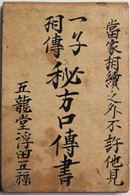 當家相續之外不許他見
一子
相傳
秘方口傳書
五龍堂浮田五禄